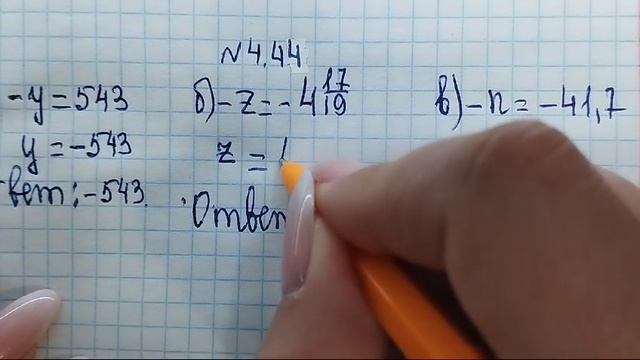 N 4.44
-y = 543
y = -543
вет: -543.
б) - z = - 4 17/19
z =
Ответ
в) - n = - 41,7